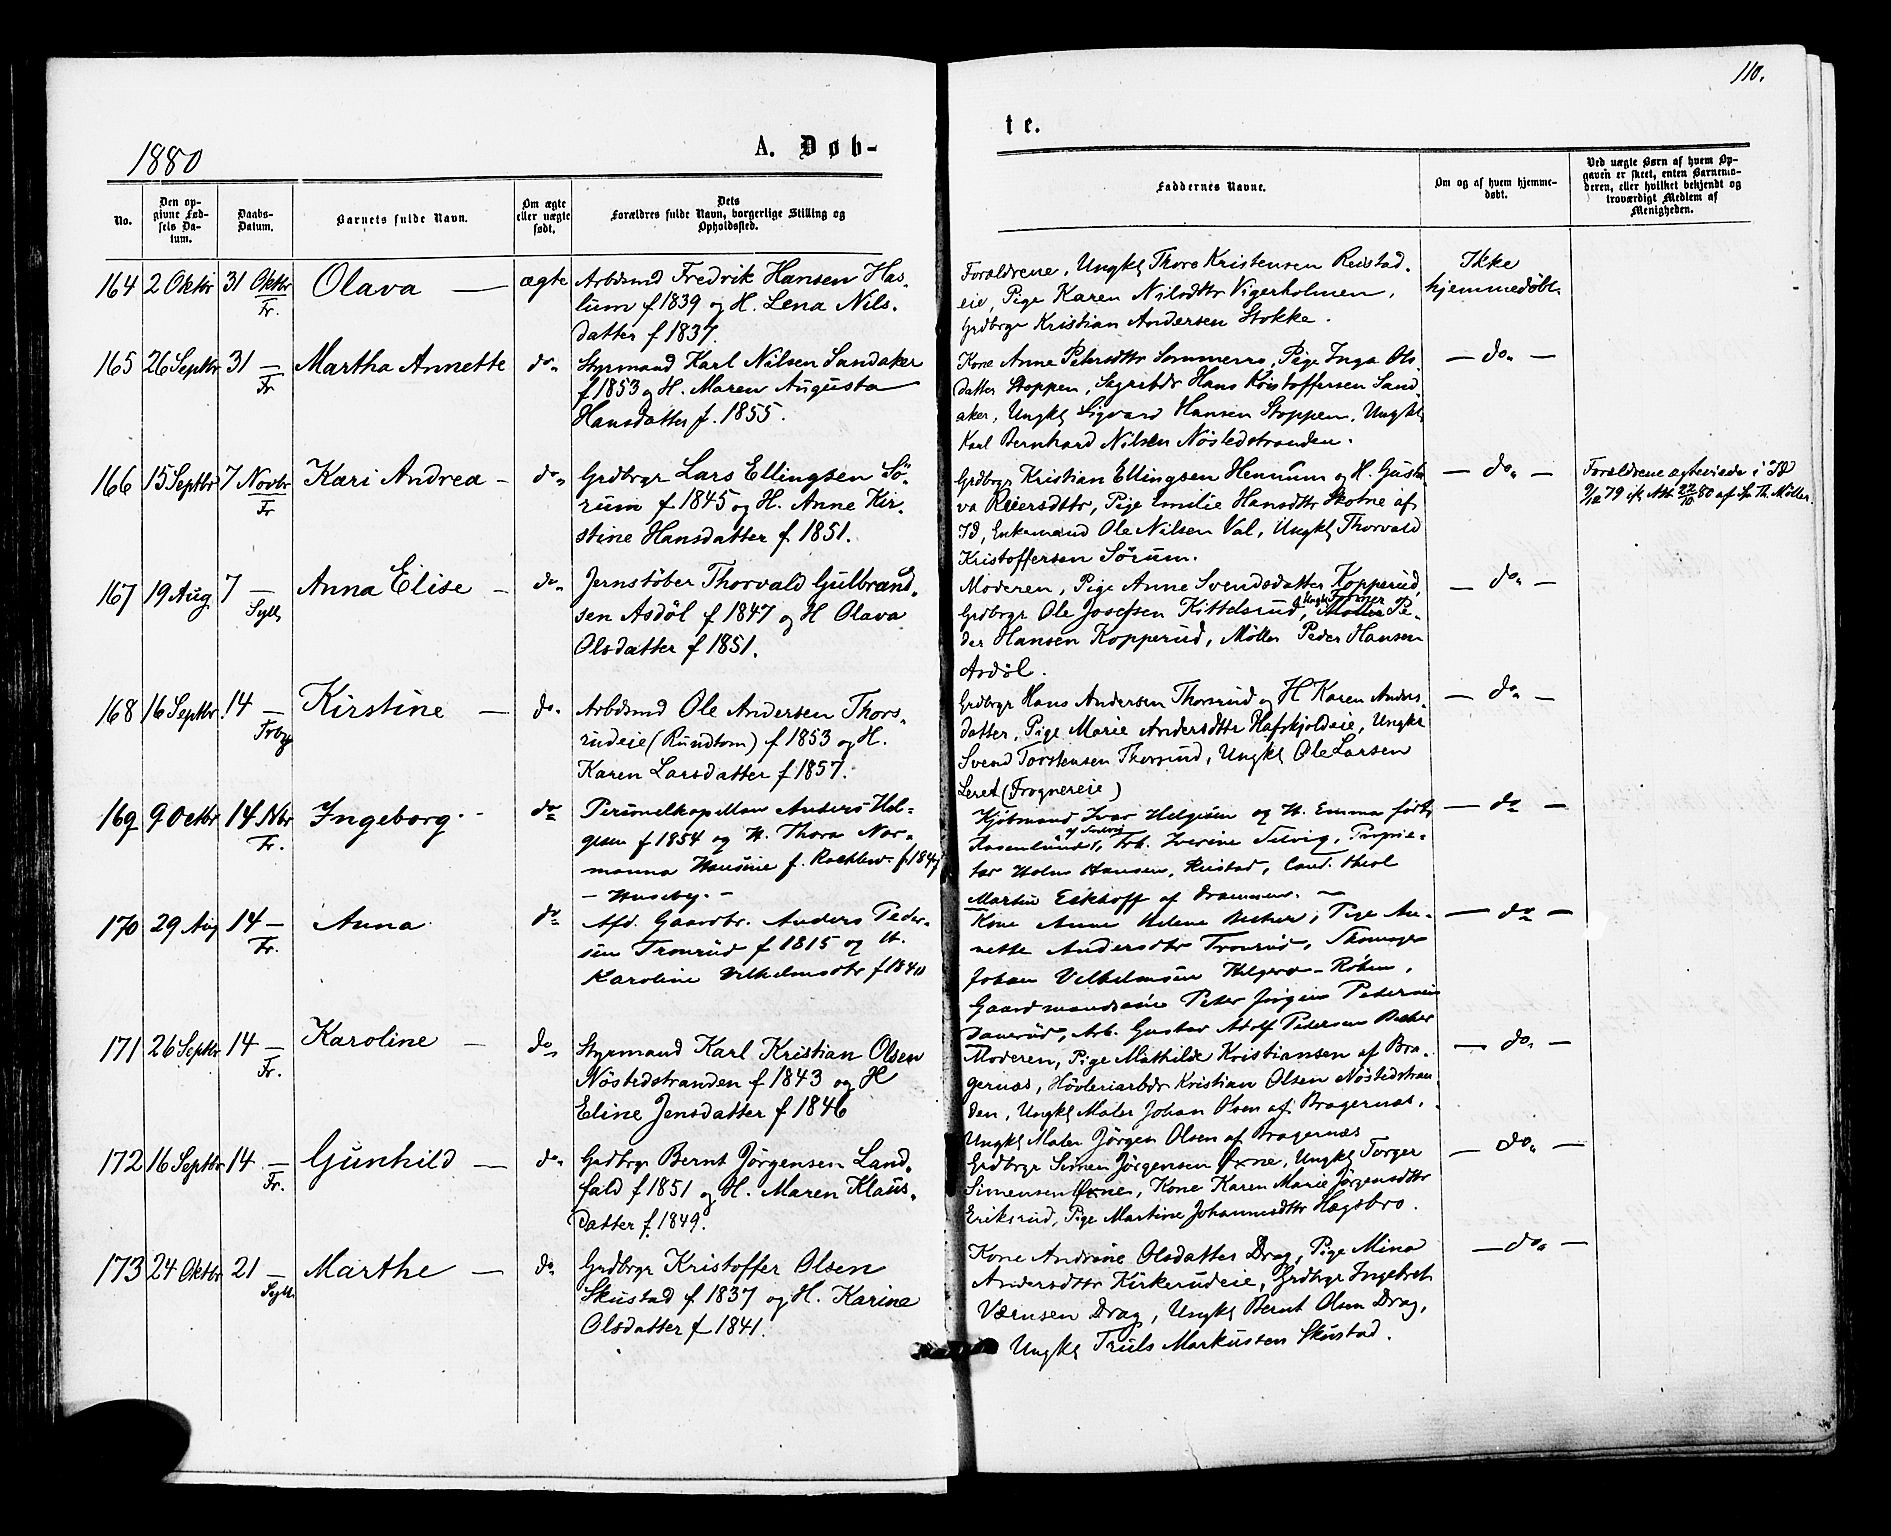 110.
1880
A. Døb-
te.
No.
Den op-
givne Fød-
sels Da-
tum.
Daabs-
Datum.
Barnets fulde Navn.
Om ægte
eller uægte
født.
Dets
Forældres fulde Navn, borgerlige Stilling og
Opholdssted.
Faddernes Navne.
Om og af hvem hjemme-
døbt.
Ved uægte Børn af hvem Op-
gaven er skeet, enten Barnemo-
deren, eller hvilket bekjendt og
troværdigt Medlem af
Menigheden.
164 2 Oktbr 31 Oktbr Fr. Olava — ægte
Arbdsmd Fredrik Hansen Has-
lum f 1839 og H. Lena Nils-
datter f 1837.
Forældrene, Ungkl Thore Kristensen Reistad-
eie, Pige Karen Nilsdttr Vigerholmen,
Grdbrgr Kristian Andersen Stokke.
Ikke
hjemmedøbt.
165 26 Septbr 31 — Fr Martha Annette do.
Styrmand Karl Nilsen Sandaker
f 1853 og H. Maren Augusta
Hansdatter f. 1855.
Kone Anne Petersdttr Sommerro, Pige Inga Ols-
datter Stoppen, Sagarbdr Hans Kristoffersen Sand-
aker, Ungkl Sigvard Hansen Stoppen, Ungkl
Karl Bernhard Nilsen Nöstedstranden.
— do. —
166 15 Septbr 7 Novbr Fr Kari Andrea - do.
Grdbrgr Lars Ellingsen Sö-
rum f 1845 og H. Anne Kir-
stine Hansdatter f 1851.
Grdbrgr Kristian Ellingsen Hennum og H. Gusta-
va Reiersdttr, Pige Emilie Hansdttr Skotne af
Id, Enkemand Ole Nilsen Val, Ungkl Thorvald
Kristoffersen Sörum.
— do. —
Forældrene ægteviede i Id
9/12 79 if. Att 22/10 80 af Sp. Th. Møller.
167 19 Aug 7 — Syll Anna Elise - do.
Jernstöber Thorvald Gulbrand-
sen Asdöl f 1847 og H Olava
Olsdatter f 1851.
Moderen, Pige Anne Svendsdatter Kopperud,
Grdbrgr Ole Josefsen Kittelsrud, Ungkl Former Pe-
der Hansen Kopperud, Møller Peder Hansen
Asdöl.
— do. —
168 16 Septbr 14 — Frbg Kirstine — do.
Arbdsmd Ole Andersen Thors-
rudeie (Rundtom) f 1853 og H.
Karen Larsdatter f 1857.
Grdbrgr Hans Andersen Thorsrud og H Karen Anders-
datter, Pige Marie Andersdttr Hafskjoldeie, Ungkl
Svend Torstensen Thorsrud, Ungkl Ole Larsen
Leret (Frognereie)
— do. —
169 9 Octbr 14 Nbr Fr. Ingeborg. - do
Anders Hel-
gesen f 1854 og H. Thora Nor-
manna f.
— Huseby. —
Kjöbmand Ivar Helgesen og H. Emma født
Rosenlund, Frk. Iverine Selvig, Proprie-
tær Holm Hansen, Reistad, Cand. theol
Martin Eckhoff af Drammen. —
— do —
170 29 Aug 14 — Fr. Anna do
Afd. Gaardbr. Anders Peder-
sen Tronrud f 1815 og H.
Karoline Vilhelmsdtr f 1840
Kone Anne Helene Becher, Pige An-
nette Andersdtr Tronrud,
Johan Vilhelmsen
Peter Jörgen Pedersen
Arb. Gustav Adolf Pedersen Becher
— do —
171 26 Septbr 14 — Fr. Karoline — do.
Styrmand Karl Kristian Olsen
Nöstedstranden f 1843 og H
Eline Jensdatter f 1846
Moderen, Pige Mathilde Kristiansen af Bra-
gernæs, Hövleriarbdr Kristian Olsen Nöstedstran-
den, Ungkl Maler Johan Olsen af Bragernæs,
Ungkl Maler Jörgen Olsen af Bragernæs
— do. —
172 16 Septbr 14 — Fr. Gunhild — do.
Grdbrgr Bernt Jörgensen Land-
fald f 1851 og H. Maren Klaus-
datter f. 1849.
Grdbrgr Simen Jörgensen Øxne, Ungkl Torger
Simensen Øxne, Kone Karen Marie Jörgensdttr
Eriksrud, Pige Martine Johannesdttr Hagsbro.
— do. —
173 24 Oktbr 21 — Syll. Marthe — do.
Grdbrgr Kristoffer Olsen
Skustad f. 1837 og H. Karine
Olsdatter f 1841.
Kone Andrine Olsdatter Drag, Pige Mina
Andersdttr Kirkerudeie, Grdbrgr Ingebret
Værnsen Drag, Ungkl Bernt Olsen Drag,
Ungkl Truls Markussen Skustad.
— do. —